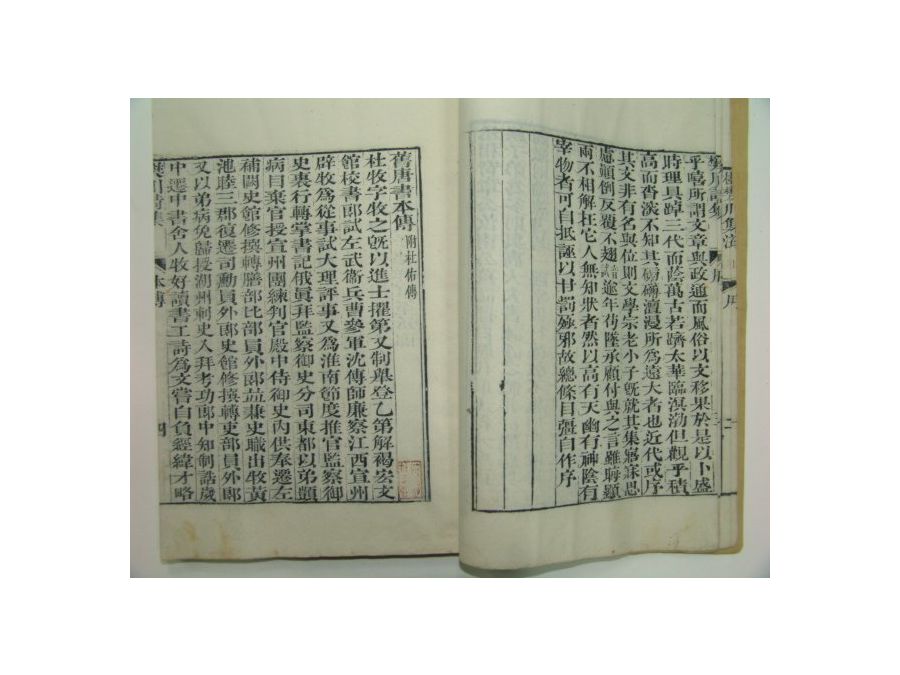 乎嘻所謂文章與政通而風俗以文移果於是以卜盛
時理具踔三代而蔭萬古若躋太華臨溟渤但觀乎積
高而沓深不知其磅礴澶漫所為遠大者也近代或序
其文非有名與位則文學宗老小子既就其集寤寐思
慮顛倒反覆不翅逾年待墜承顧付與之言雖晦顯
兩不相解枉它人無知狀者然以高有天幽有神陰有
宰物者可自抵誣以甘罰殛邪故總條目彊自作序
舊唐書本傳 附杜佑傳
杜牧字牧之既以進士擢第又制舉登乙第解褐宏文
館校書郎試左武衞兵曹參軍沈傳師廉察江西宣州
辟牧為從事試大理評事又為淮南節度推官監察御
史裏行轉掌書記俄眞拜監察御史分司東都以弟顗
病目棄官授宣州團練判官殿中侍御史內供奉遷左
補闕史館修撰轉膳部比部員外郎並兼史職出牧黃
池睦三郡復遷司勳員外郎史館修撰轉吏部員外郎
又以弟病免歸授湖州刺史入拜考功郎中知制誥歲
中遷中書舍人牧好讀書工詩為文嘗自負經緯才略
樊川詩集 本傳 四